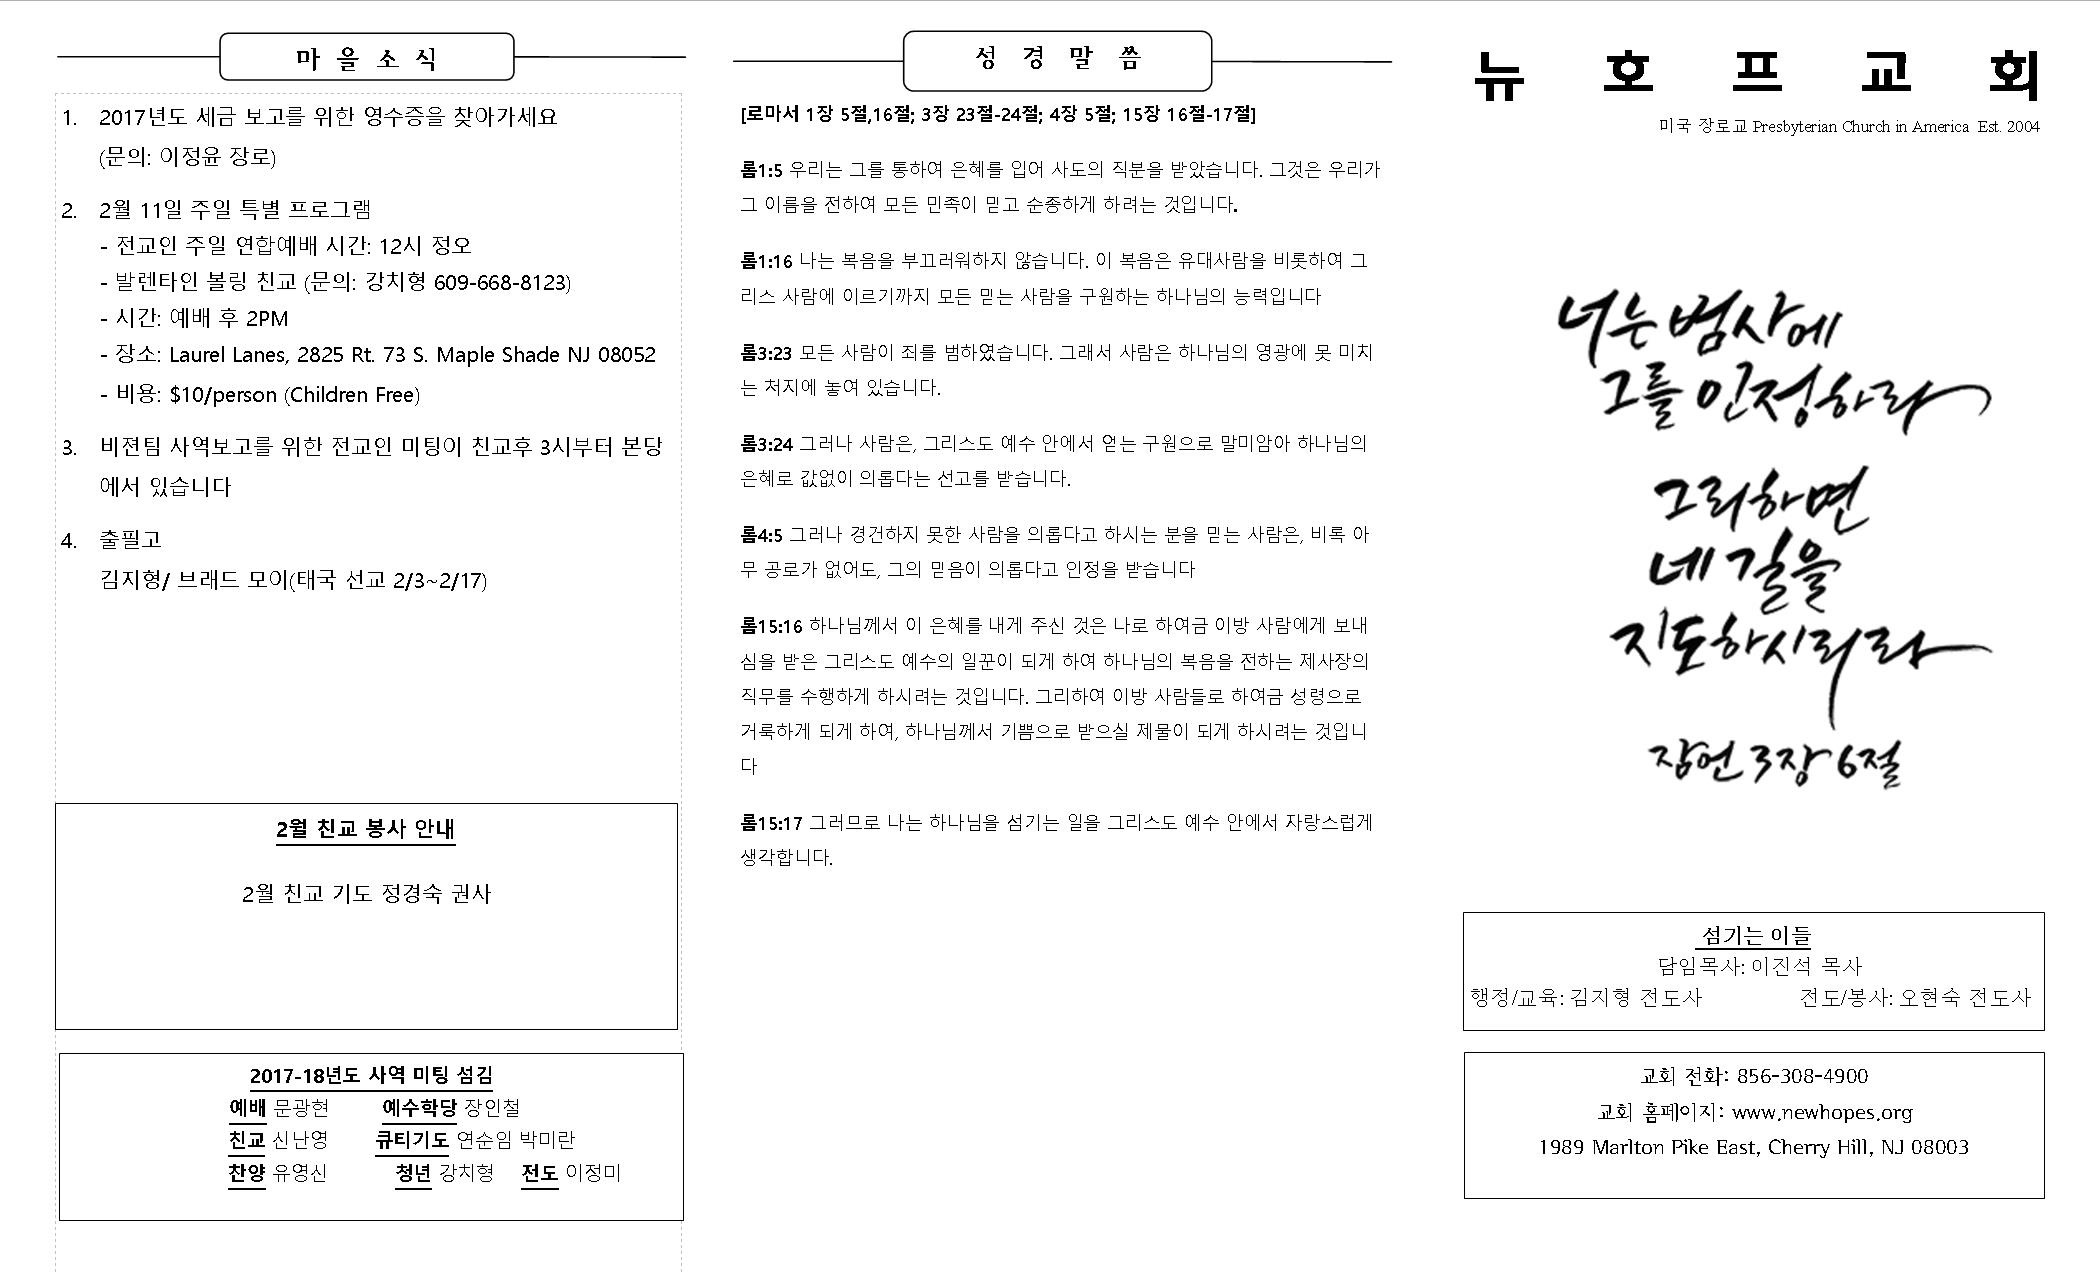 마 을 소 식
1. 2017년도 세금 보고를 위한 영수증을 찾아가세요
(문의: 이정윤 장로)
2. 2월 11일 주일 특별 프로그램
- 전교인 주일 연합예배 시간: 12시 정오
- 발렌타인 볼링 친교 (문의: 강치형 609-668-8123)
- 시간: 예배 후 2PM
- 장소: Laurel Lanes, 2825 Rt. 73 S. Maple Shade NJ 08052
- 비용: $10/person (Children Free)
3. 비젼팀 사역보고를 위한 전교인 미팅이 친교후 3시부터 본당
에서 있습니다
4. 출필고
김지형/ 브래드 모이(태국 선교 2/3~2/17)
2월 친교 봉사 안내
2월 친교 기도 정경숙 권사
2017-18년도 사역 미팅 섬김
예배 문광현 예수학당 장인철
친교 신난영 큐티기도 연순임 박미란
찬양 유영신 청년 강치형 전도 이정미
성 경 말 씀
[로마서 1장 5절,16절; 3장 23절-24절; 4장 5절; 15장 16절-17절]
롬1:5 우리는 그를 통하여 은혜를 입어 사도의 직분을 받았습니다. 그것은 우리가
그 이름을 전하여 모든 민족이 믿고 순종하게 하려는 것입니다.
롬1:16 나는 복음을 부끄러워하지 않습니다. 이 복음은 유대사람을 비롯하여 그
리스 사람에 이르기까지 모든 믿는 사람을 구원하는 하나님의 능력입니다
롬3:23 모든 사람이 죄를 범하였습니다. 그래서 사람은 하나님의 영광에 못 미치
는 처지에 놓여 있습니다.
롬3:24 그러나 사람은, 그리스도 예수 안에서 얻는 구원으로 말미암아 하나님의
은혜로 값없이 의롭다는 선고를 받습니다.
롬4:5 그러나 경건하지 못한 사람을 의롭다고 하시는 분을 믿는 사람은, 비록 아
무 공로가 없어도, 그의 믿음이 의롭다고 인정을 받습니다
롬15:16 하나님께서 이 은혜를 내게 주신 것은 나로 하여금 이방 사람에게 보내
심을 받은 그리스도 예수의 일꾼이 되게 하여 하나님의 복음을 전하는 제사장의
직무를 수행하게 하시려는 것입니다. 그리하여 이방 사람들로 하여금 성령으로
거룩하게 되게 하여, 하나님께서 기쁨으로 받으실 제물이 되게 하시려는 것입니
다
롬15:17 그러므로 나는 하나님을 섬기는 일을 그리스도 예수 안에서 자랑스럽게
생각합니다.
뉴 호 프 교 회
미국 장로교 Presbyterian Church in America Est. 2004
너는 범사에
그를 인정하라
그리하면
네 길을
지도하시리라
잠언 3장 6절
섬기는 이들
담임목사: 이진석 목사
행정/교육: 김지형 전도사 전도/봉사: 오현숙 전도사
교회 전화: 856-308-4900
교회 홈페이지: www.newhopes.org
1989 Marlton Pike East, Cherry Hill, NJ 08003